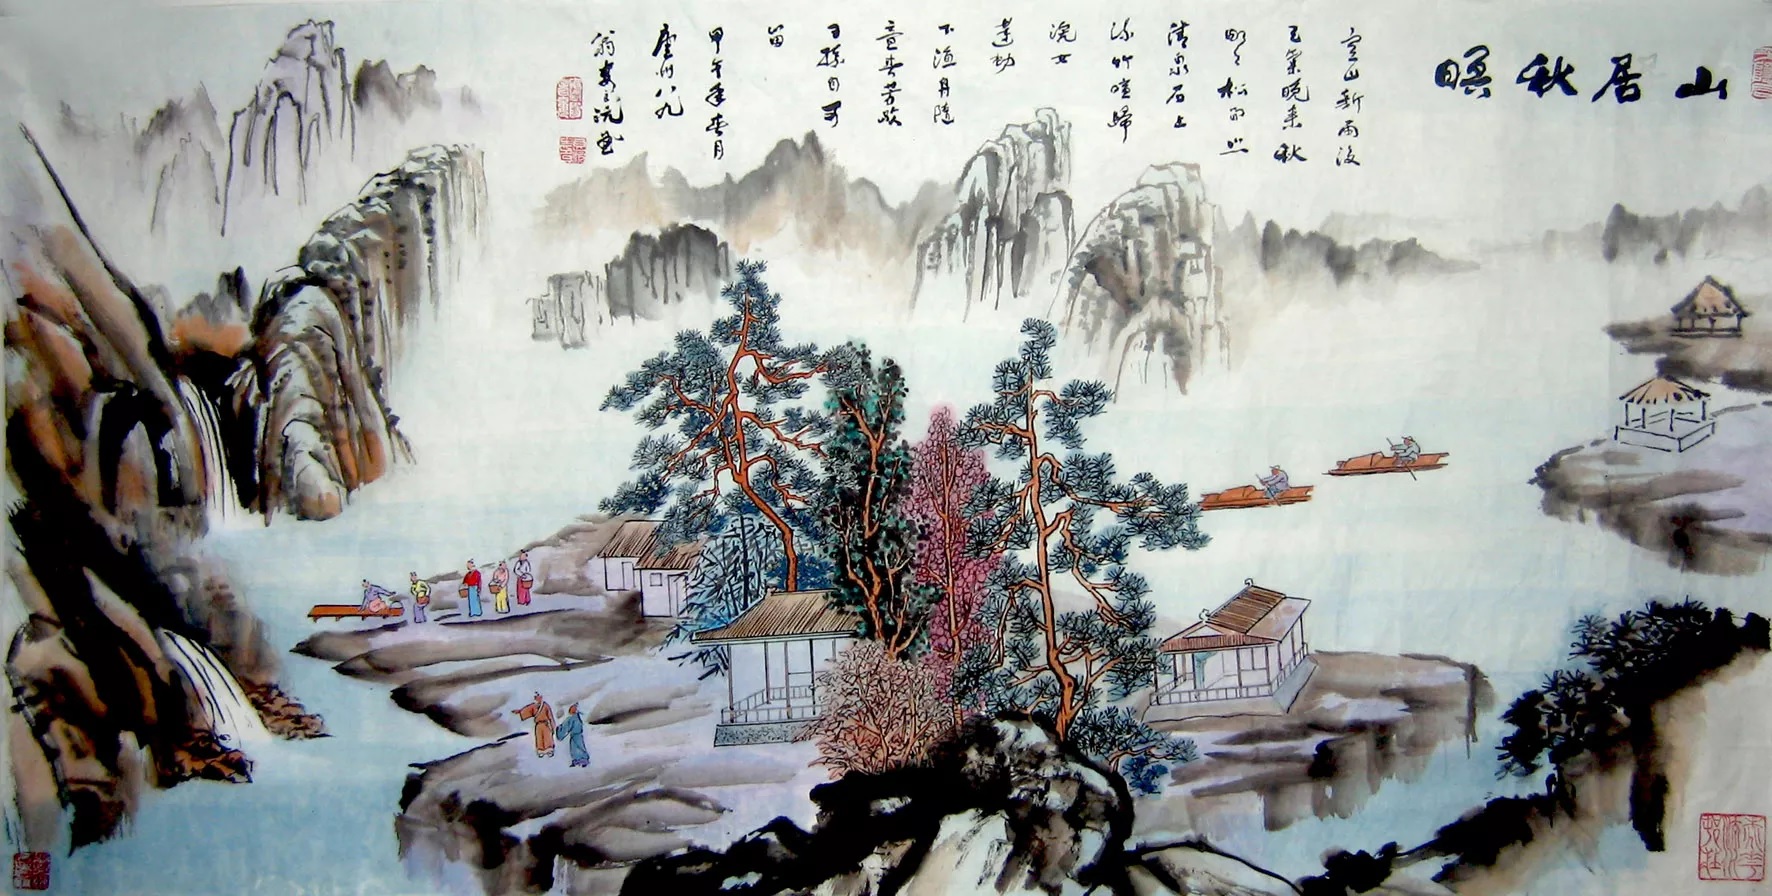 山居秋暝
空山新雨後
天氣晚来秋
明月松间照
清泉石上
流竹喧歸
浣女
蓮动
下渔舟隨
意春芳歇
王孫自可
留
甲午年春月
庐州八九
翁